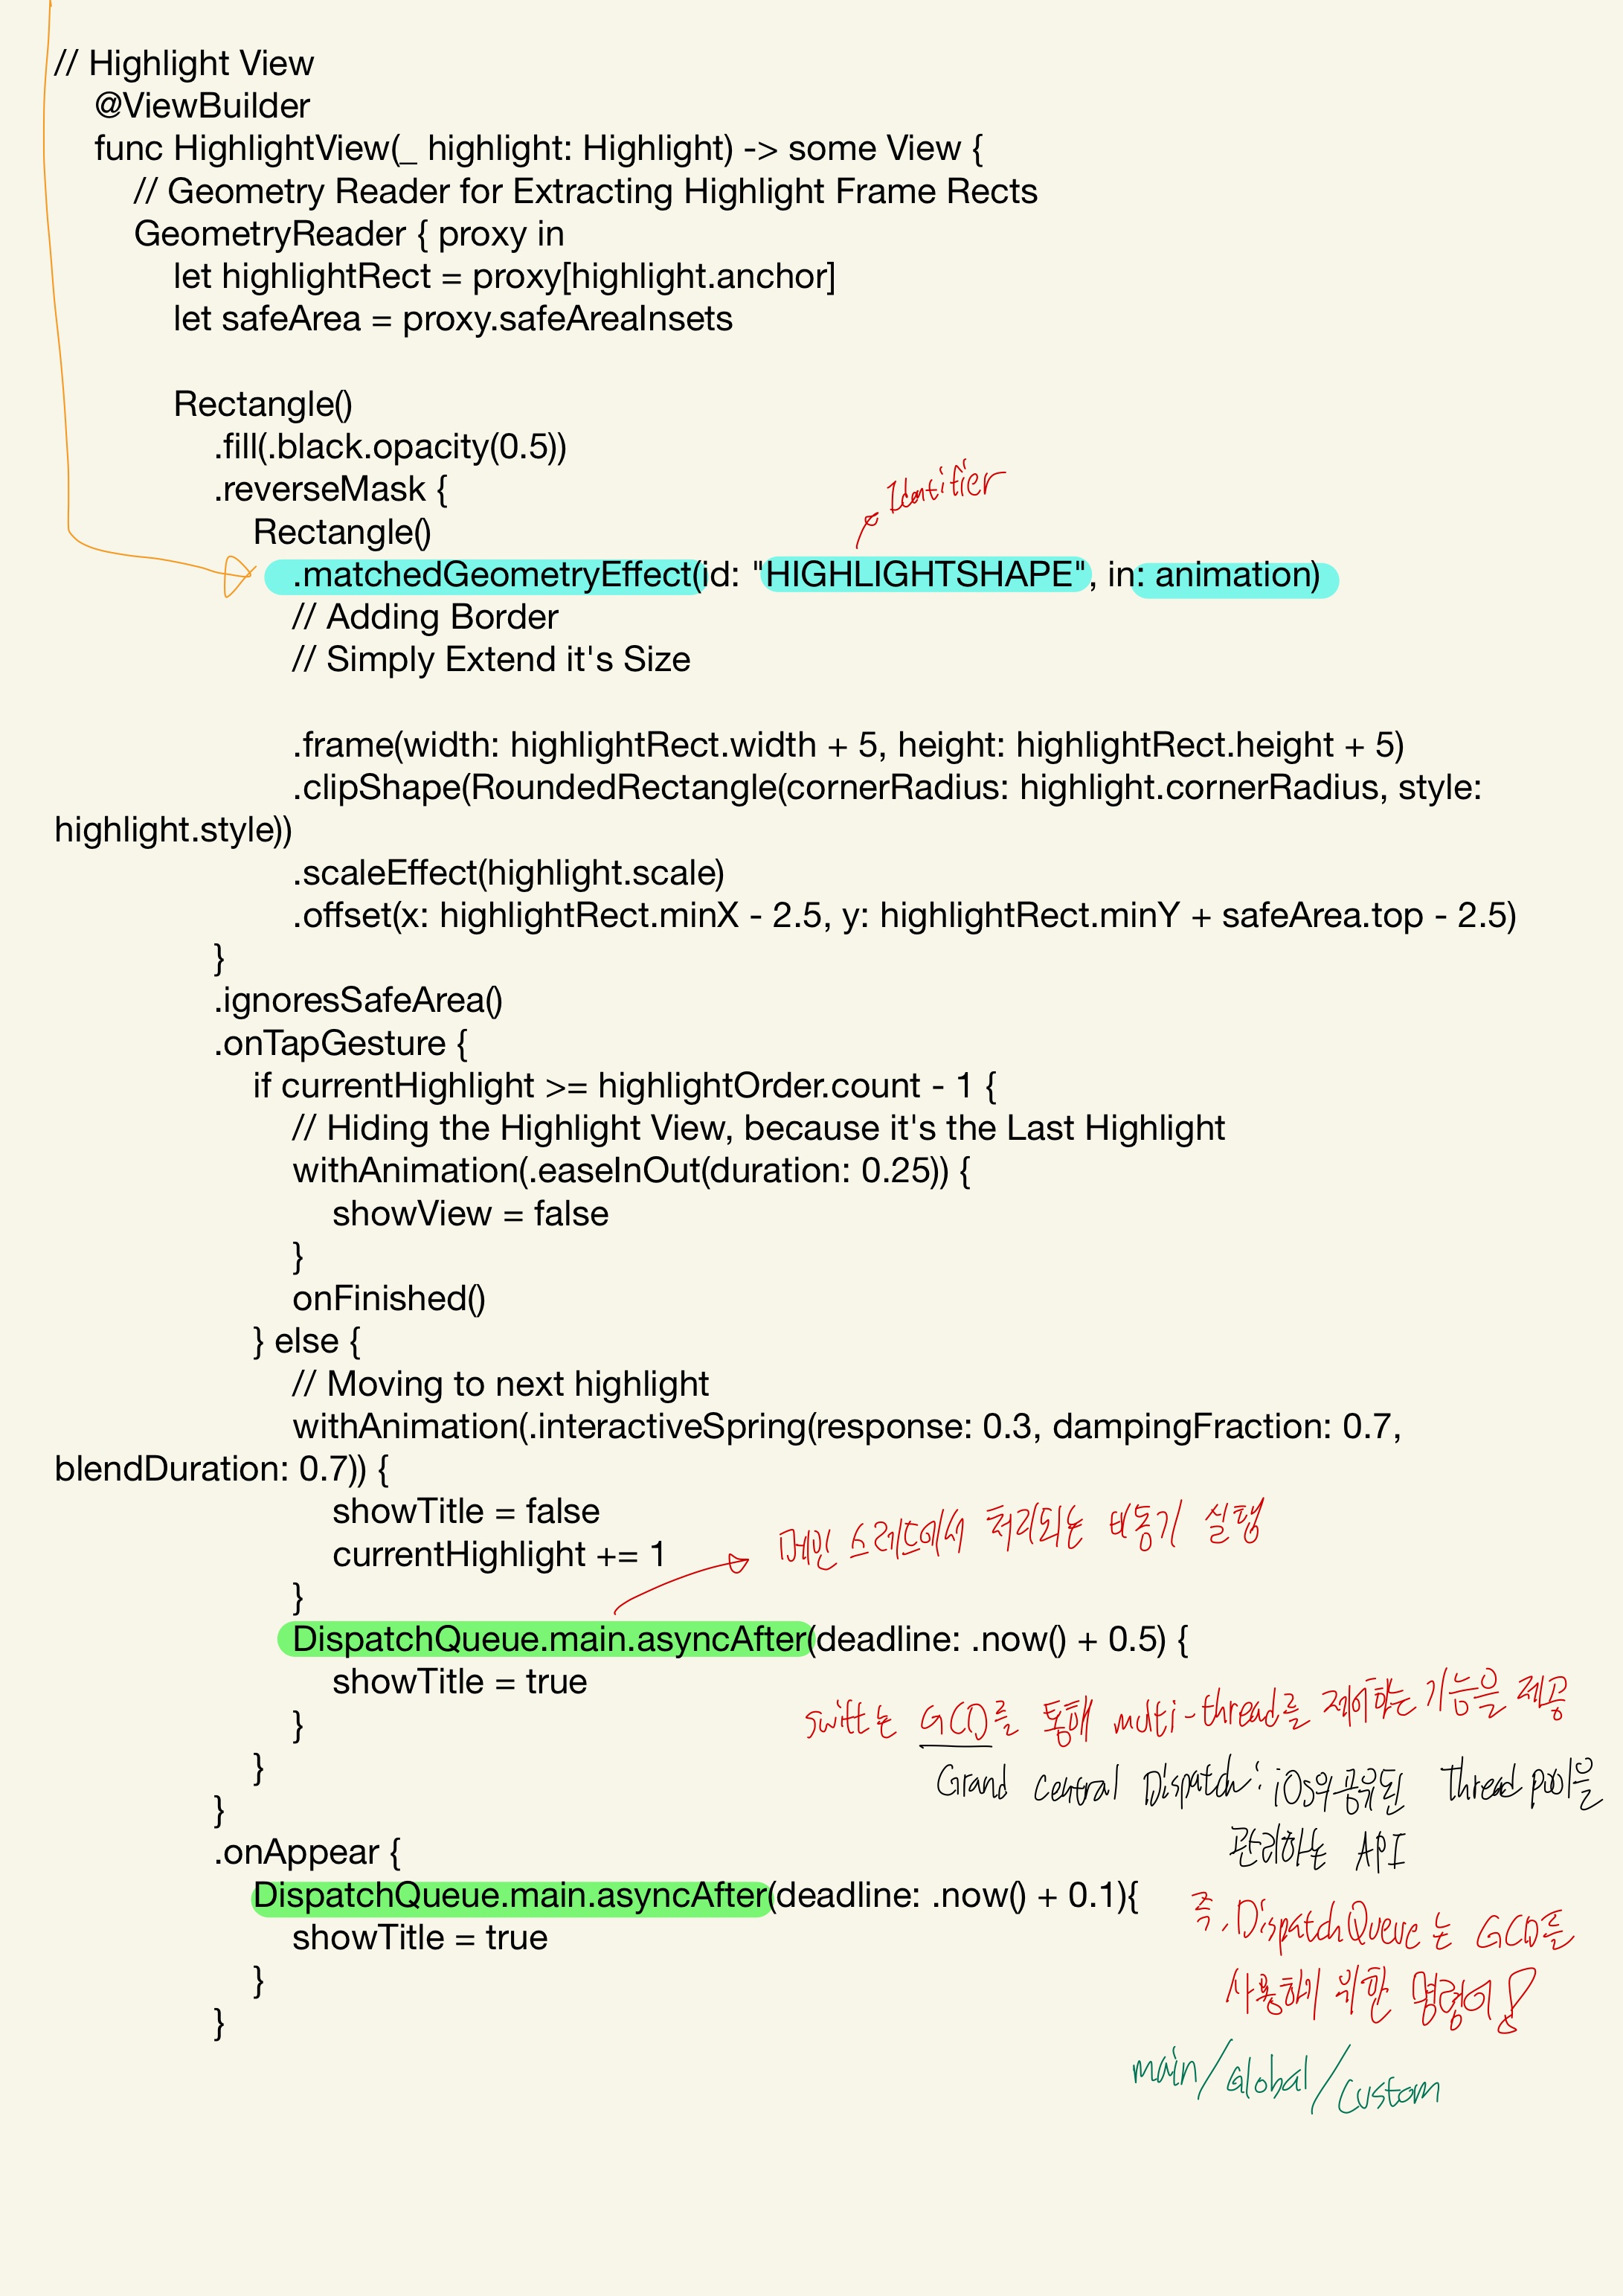 // Highlight View
@ViewBuilder
func HighlightView(_ highlight: Highlight) -> some View {
// Geometry Reader for Extracting Highlight Frame Rects
GeometryReader { proxy in
let highlightRect = proxy[highlight.anchor]
let safeArea = proxy.safeAreaInsets
Rectangle()
.fill(.black.opacity(0.5))
.reverseMask {
Identifier
Rectangle()
.matchedGeometryEffect(id: "HIGHLIGHTSHAPE", in: animation)
// Adding Border
// Simply Extend it's Size
.frame(width: highlightRect.width + 5, height: highlightRect.height + 5)
.clipShape(RoundedRectangle(cornerRadius: highlight.cornerRadius, style:
highlight.style))
.scaleEffect(highlight.scale)
.offset(x: highlightRect.minX - 2.5, y: highlightRect.minY + safeArea.top - 2.5)
}
.ignoresSafeArea()
.onTapGesture {
if currentHighlight >= highlightOrder.count - 1 {
// Hiding the Highlight View, because it's the Last Highlight
withAnimation(.easeInOut(duration: 0.25)) {
showView = false
}
onFinished()
} else {
// Moving to next highlight
withAnimation(.interactiveSpring(response: 0.3, dampingFraction: 0.7,
blendDuration: 0.7)) {
showTitle = false
메인 스레드에서 처리되는 비동기 실행
currentHighlight += 1
}
DispatchQueue.main.asyncAfter(deadline: .now() + 0.5) {
showTitle = true
swift는 GCD를 통해 multi-thread를 제어하는 기능을 제공
}
}
Grand Central Dispatch: iOS의 공유된 thread pool을
}
관리하는 API
.onAppear {
DispatchQueue.main.asyncAfter(deadline: .now() + 0.1){
즉, DispatchQueue는 GCD를
showTitle = true
}
사용하기 위한 명령어!
}
main/Global/Custom